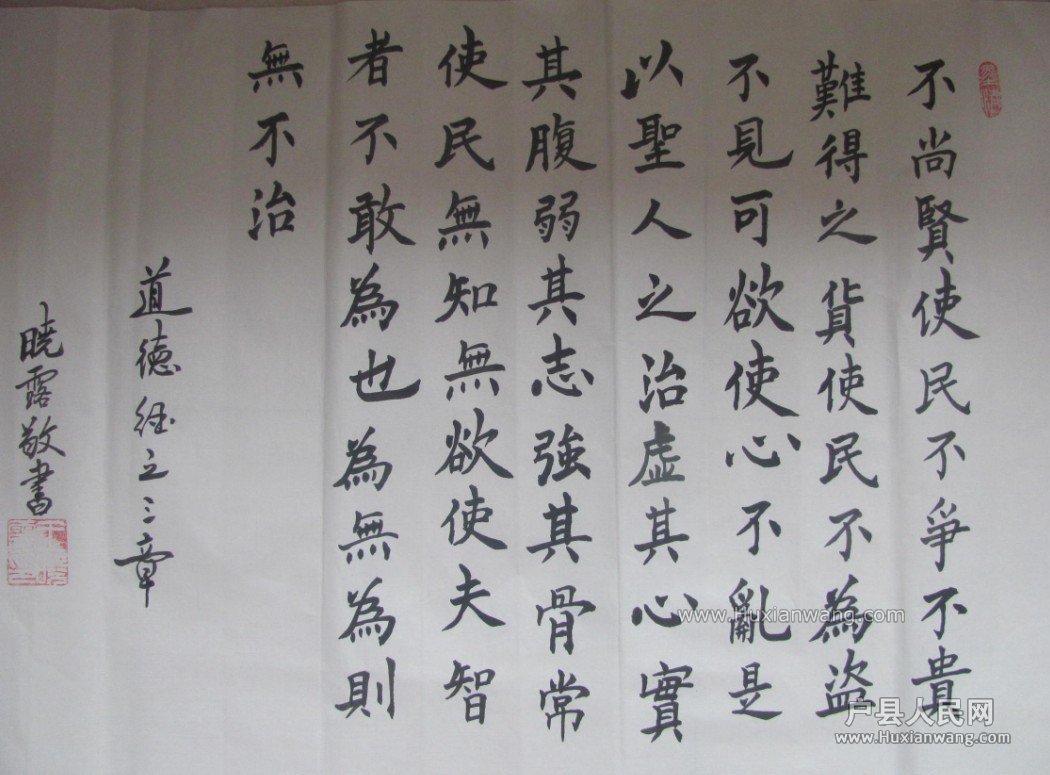 不尚賢使民不爭不貴
難得之貨使民不為盜
不見可欲使心不亂是
以聖人之治虛其心實
其腹弱其志強其骨常
使民無知無欲使夫智
者不敢為也為無為則
無不治
道德經之三章
曉露敬書
www.Huxianwang.com
户县人民网
www.Huxianwang.com